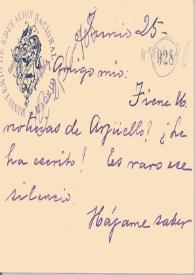 Junio 25-
928
Amigo mio:
Tiene U.
noticias de Argüello? ¿Le
ha escrito? Es raro ese
silencio.
Hágame saber